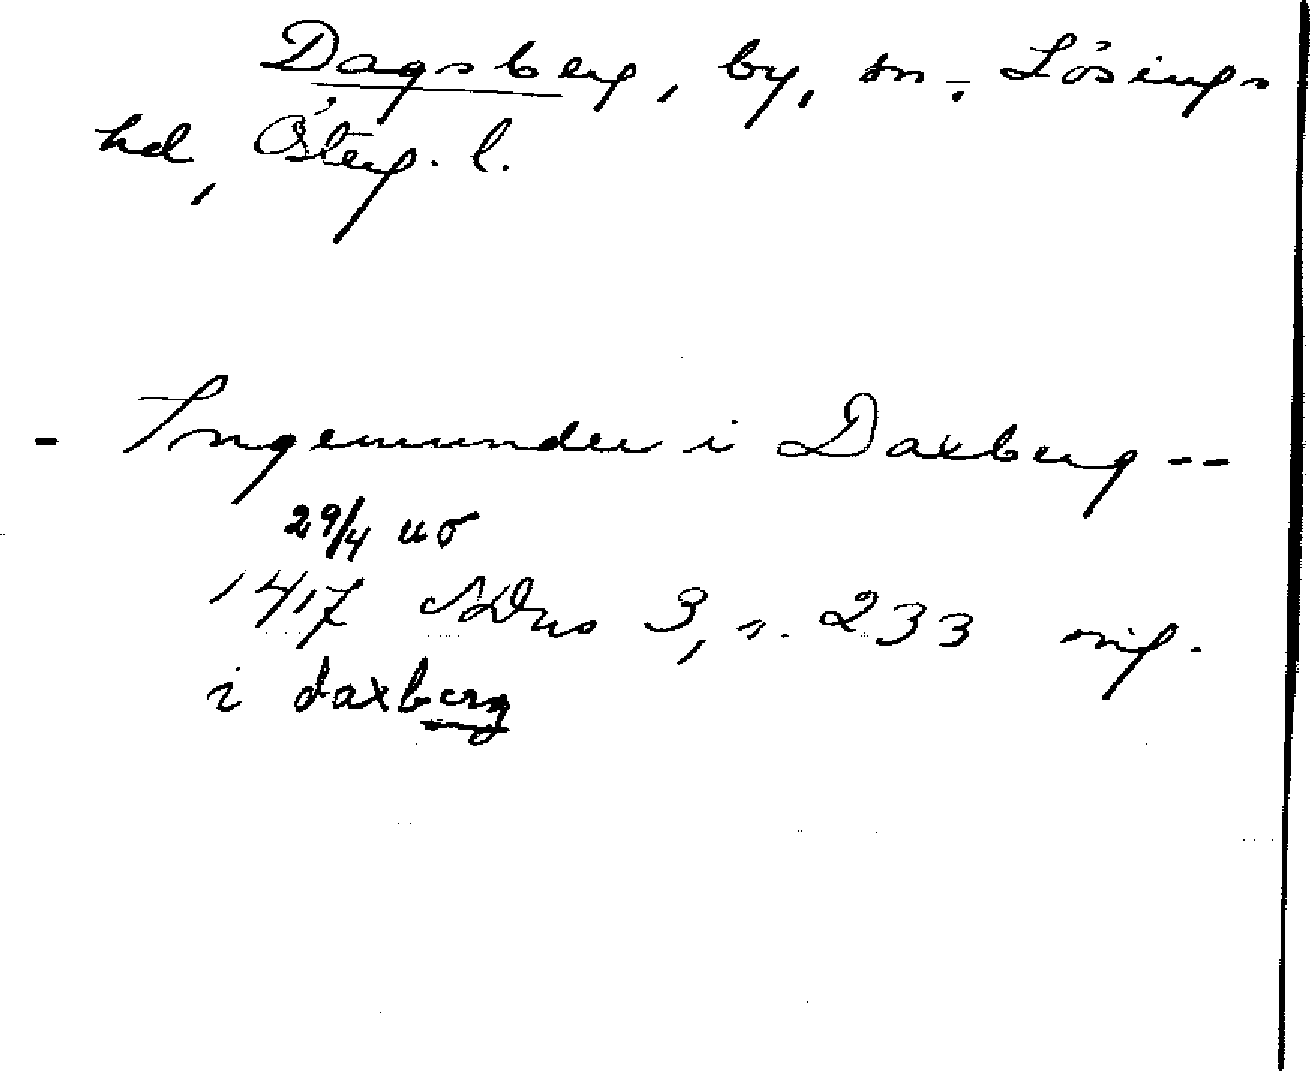 Dagsberg, by, sn, Lösings
hd, Österg. l.
- Ingemunder i Daxberg --
29/4 uo
1417 SDns 3, s. 233 orig.
i daxberg